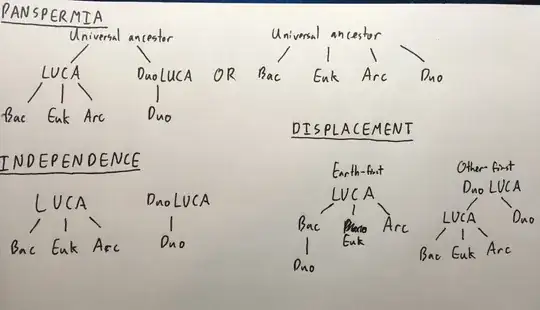 PANSPERMIA
Universal ancestor
LUCA DuoLUCA
Bac Euk Arc Duo
OR
Universal ancestor
Bac Euk Arc Duo
INDEPENDENCE
LUCA DuoLUCA
Bac Euk Arc Duo
DISPLACEMENT
Earth-first
LUCA
Bac Euk Arc
Duo
Other-first
Duo LUCA
LUCA Duo
Bac Euk Arc